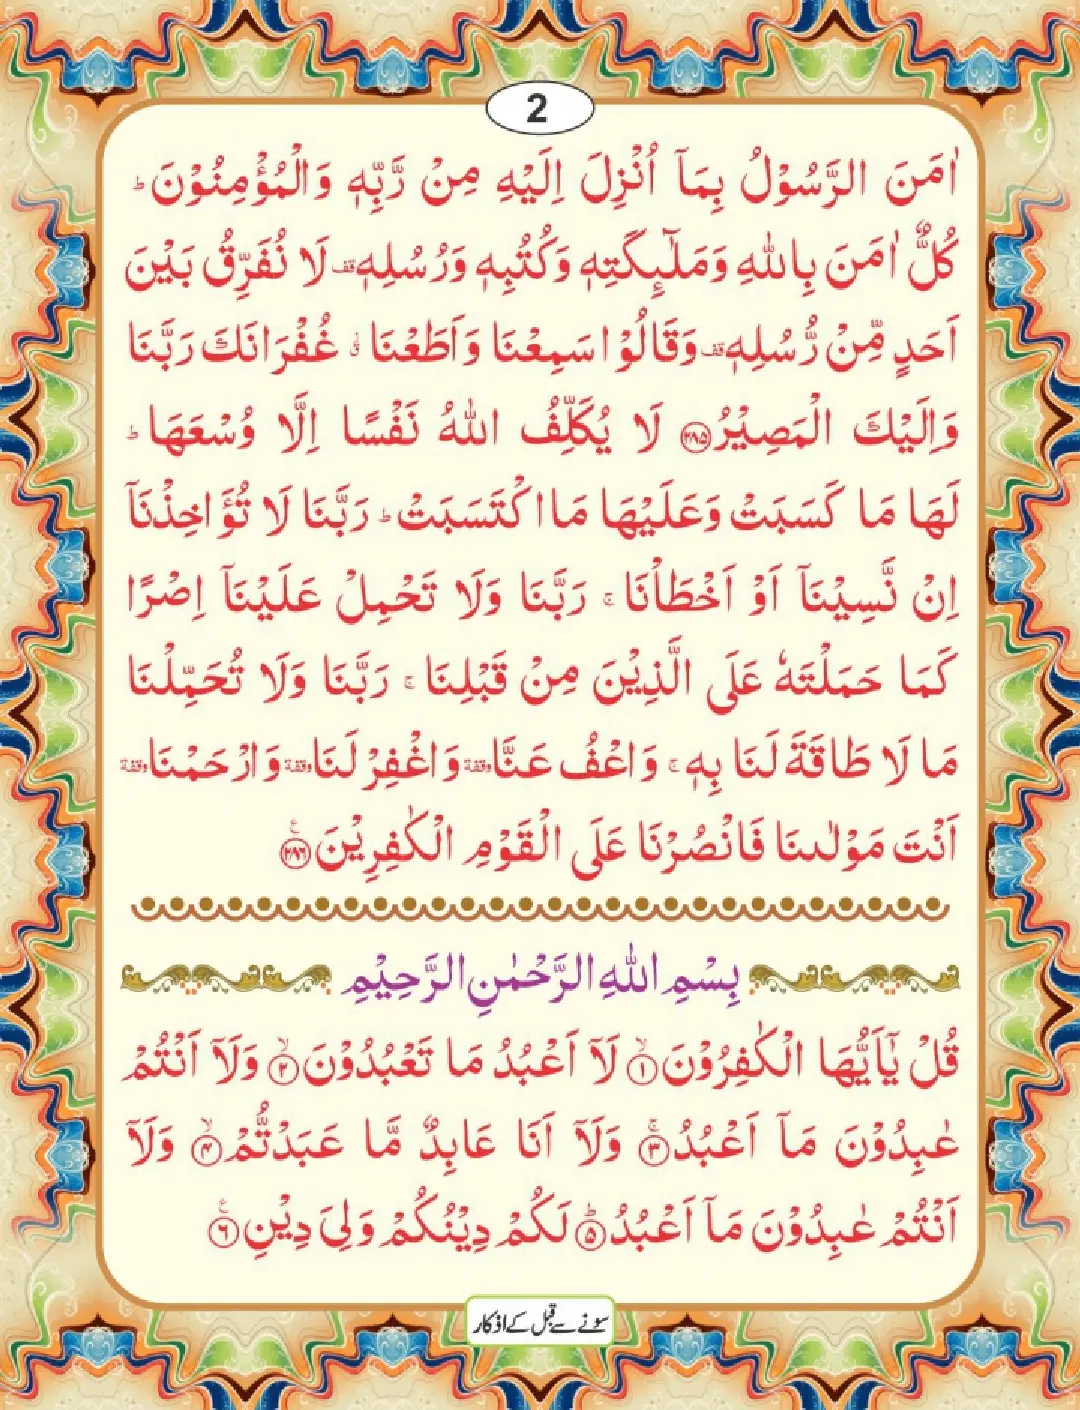 2
اٰمَنَ الرَّسُوْلُ بِمَاۤ اُنْزِلَ اِلَيْهِ مِنْ رَّبِّهٖ وَالْمُؤْمِنُوْنَ ؕ
كُلٌّ اٰمَنَ بِاللّٰهِ وَمَلٰٓئِكَتِهٖ وَكُتُبِهٖ وَرُسُلِهٖ قف لَا نُفَرِّقُ بَيْنَ
اَحَدٍ مِّنْ رُّسُلِهٖ قف وَقَالُوْا سَمِعْنَا وَاَطَعْنَا ق غُفْرَانَكَ رَبَّنَا
وَاِلَيْكَ الْمَصِيْرُ ﴿۲۸۵﴾ لَا يُكَلِّفُ اللّٰهُ نَفْسًا اِلَّا وُسْعَهَا ؕ
لَهَا مَا كَسَبَتْ وَعَلَيْهَا مَا اكْتَسَبَتْ ؕ رَبَّنَا لَا تُؤَاخِذْنَاۤ
اِنْ نَّسِيْنَاۤ اَوْ اَخْطَاْنَا ۚ رَبَّنَا وَلَا تَحْمِلْ عَلَيْنَاۤ اِصْرًا
كَمَا حَمَلْتَهٗ عَلَى الَّذِيْنَ مِنْ قَبْلِنَا ۚ رَبَّنَا وَلَا تُحَمِّلْنَا
مَا لَا طَاقَةَ لَنَا بِهٖ ۚ وَاعْفُ عَنَّا وقفة وَاغْفِرْ لَنَا وقفة وَارْحَمْنَا وقفة
اَنْتَ مَوْلٰىنَا فَانْصُرْنَا عَلَى الْقَوْمِ الْكٰفِرِيْنَ ﴿۲۸۶﴾ ع
بِسْمِ اللّٰهِ الرَّحْمٰنِ الرَّحِيْمِ
قُلْ يٰۤاَيُّهَا الْكٰفِرُوْنَ ﴿۱﴾ ۙ لَاۤ اَعْبُدُ مَا تَعْبُدُوْنَ ﴿۲﴾ ۙ وَلَاۤ اَنْتُمْ
عٰبِدُوْنَ مَاۤ اَعْبُدُ ﴿۳﴾ ۚ وَلَاۤ اَنَا عَابِدٌ مَّا عَبَدْتُّمْ ﴿۴﴾ ۙ وَلَاۤ
اَنْتُمْ عٰبِدُوْنَ مَاۤ اَعْبُدُ ﴿۵﴾ ؕ لَكُمْ دِيْنُكُمْ وَلِيَ دِيْنِ ﴿۶﴾ ع
سونے سے قبل کے اذکار